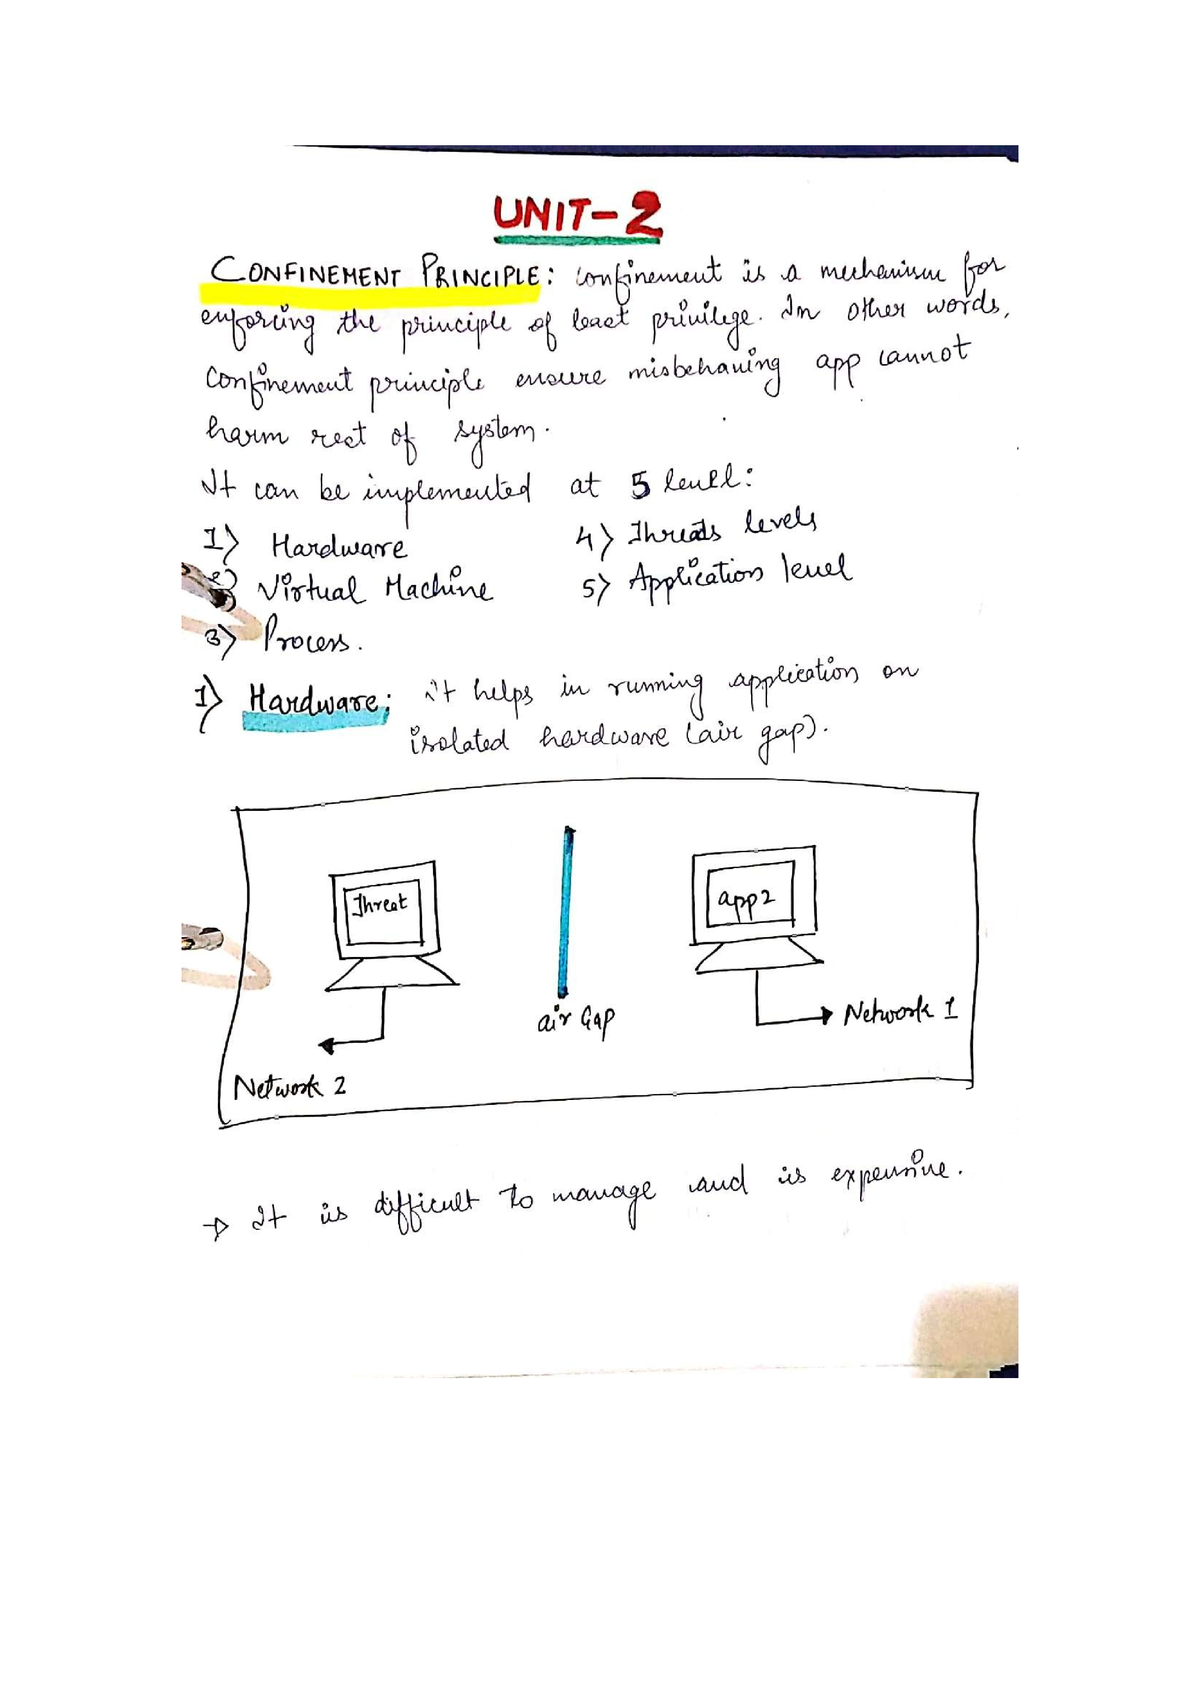 UNIT-2
CONFINEMENT PRINCIPLE: Confinement is a mechanism for
enforcing the principle of least privilege. In other words,
Confinement principle ensure misbehaving app cannot
harm rest of system.
It can be implemented at 5 level:
1) Hardware 4) Threads levels
2) Virtual Machine 5) Application level
3) Process.
1) Hardware: it helps in running application on
isolated hardware (air gap).
Threat
app2
air Gap
Network 1
Network 2
→ It is difficult to manage and is expensive.